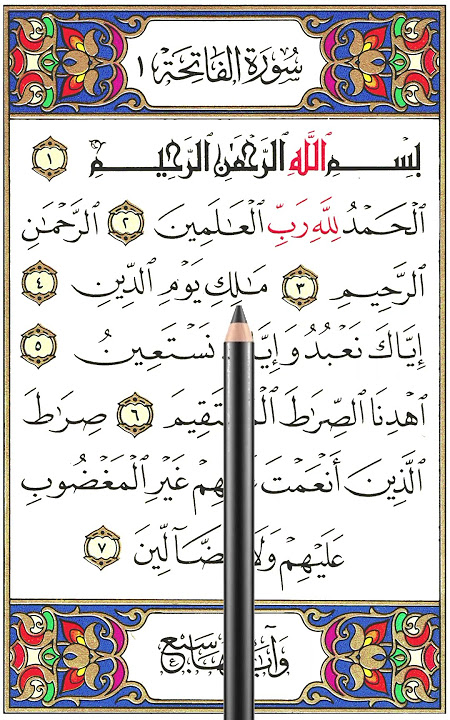 سُورَةُ الفَاتِحَة ١
بِسْمِ ٱللَّهِ ٱلرَّحْمَٰنِ ٱلرَّحِيمِ ١
ٱلْحَمْدُ لِلَّهِ رَبِّ ٱلْعَٰلَمِينَ ٢ ٱلرَّحْمَٰنِ
ٱلرَّحِيمِ ٣ مَٰلِكِ يَوْمِ ٱلدِّينِ ٤
إِيَّاكَ نَعْبُدُ وَ نَسْتَعِينُ ٥
ٱهْدِنَا ٱلصِّرَٰطَ ٦ صِرَٰطَ
ٱلَّذِينَ أَنْعَمْتَ غَيْرِ ٱلْمَغْضُوبِ
عَلَيْهِمْ ٧
سبع